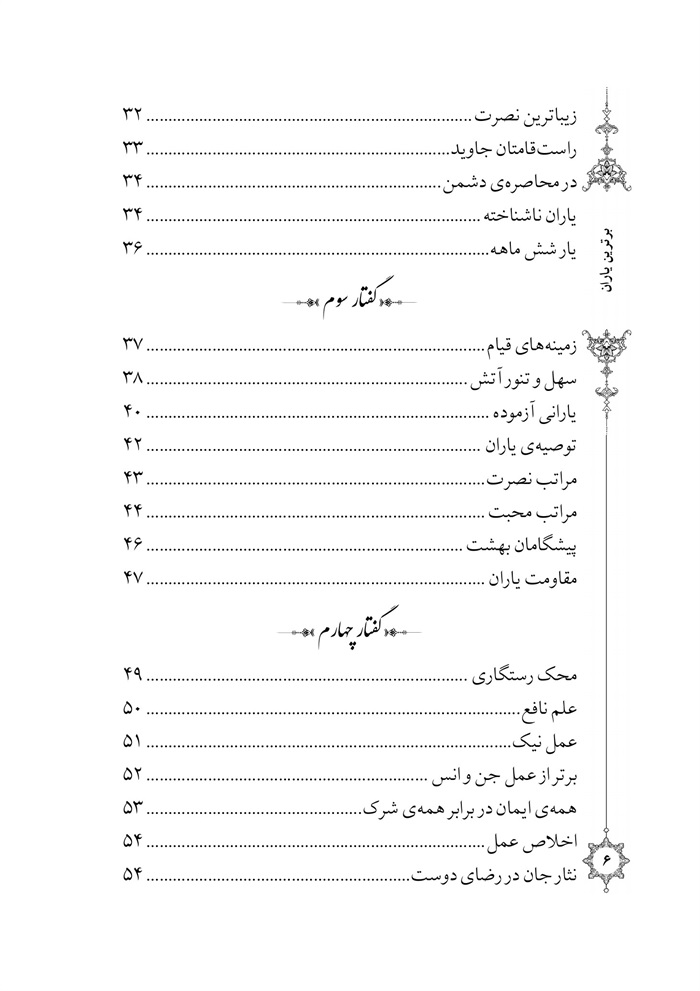 زیباترین نصرت ........................ ۳۲
راست‌قامتان جاوید ........................ ۳۳
در محاصره‌ی دشمن ........................ ۳۴
یاران ناشناخته ........................ ۳۴
یار شش ماهه ........................ ۳۶
برترین یاران
گفتار سوم
زمینه‌های قیام ........................ ۳۷
سهل و تنور آتش ........................ ۳۸
یارانی آزموده ........................ ۴۰
توصیه‌ی یاران ........................ ۴۲
مراتب نصرت ........................ ۴۳
مراتب محبت ........................ ۴۴
پیشگامان بهشت ........................ ۴۶
مقاومت یاران ........................ ۴۷
گفتار چهارم
محک رستگاری ........................ ۴۹
علم نافع ........................ ۵۰
عمل نیک ........................ ۵۱
برتر از عمل جن و انس ........................ ۵۲
همه‌ی ایمان در برابر همه‌ی شرک ........................ ۵۳
اخلاص عمل ........................ ۵۴
نثار جان در رضای دوست ........................ ۵۴
۶